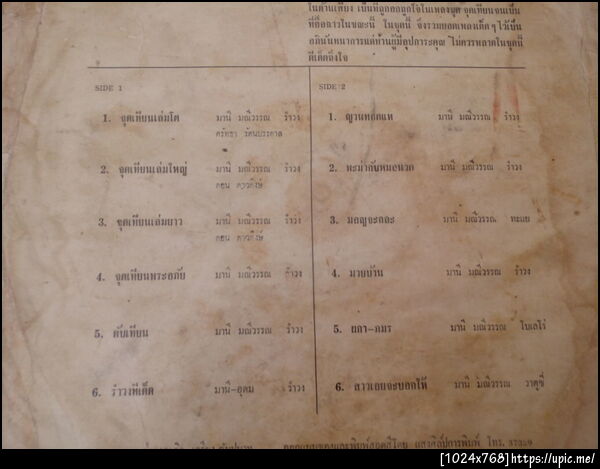 ในด้านเพลง เป็นที่ถูกอกถูกใจในเพลงชุด จุดเทียนจนเป็น
ที่ลือฉาวในขณะนี้ ในชุดนี้ จึงรวมยอดเพลงเด็ดๆไว้เป็น
อภินันทนาการแด่ท่านผู้มีอุปการะคุณ ไม่ควรพลาดในชุดนี้
ทีเด็ดถึงใจ
SIDE 1
1. จุดเทียนเล่มโต มานี มณีวรรณ รำวง
ศรัทธา รัตนบรรดาล
2. จุดเทียนเล่มใหญ่ มานี มณีวรรณ รำวง
ดอน ดาวดึงษ์
3. จุดเทียนเล่มยาว มานี มณีวรรณ รำวง
ดอน ดาวดึงษ์
4. จุดเทียนพระอภัย มานี มณีวรรณ รำวง
5. ดับเทียน มานี มณีวรรณ รำวง
6. รำวงทีเด็ด มานี-อุดม รำวง
SIDE 2
1. ญวนทอดแห มานี มณีวรรณ รำวง
2. พะม่ากับหมอนวด มานี มณีวรรณ รำวง
3. มอญจะถอะ มานี มณีวรรณ ทะแย
4. มวยบ้าน มานี มณีวรรณ รำวง
5. ผกา-ภมร มานี มณีวรรณ โบเลโร่
6. สาวเอยจะบอกให้ มานี มณีวรรณ วาตูซี่
ออกแบบของและพิมพ์สอดสีโดย แสงศิลป์การพิมพ์ โทร.
[1024x768]https://upic.me/